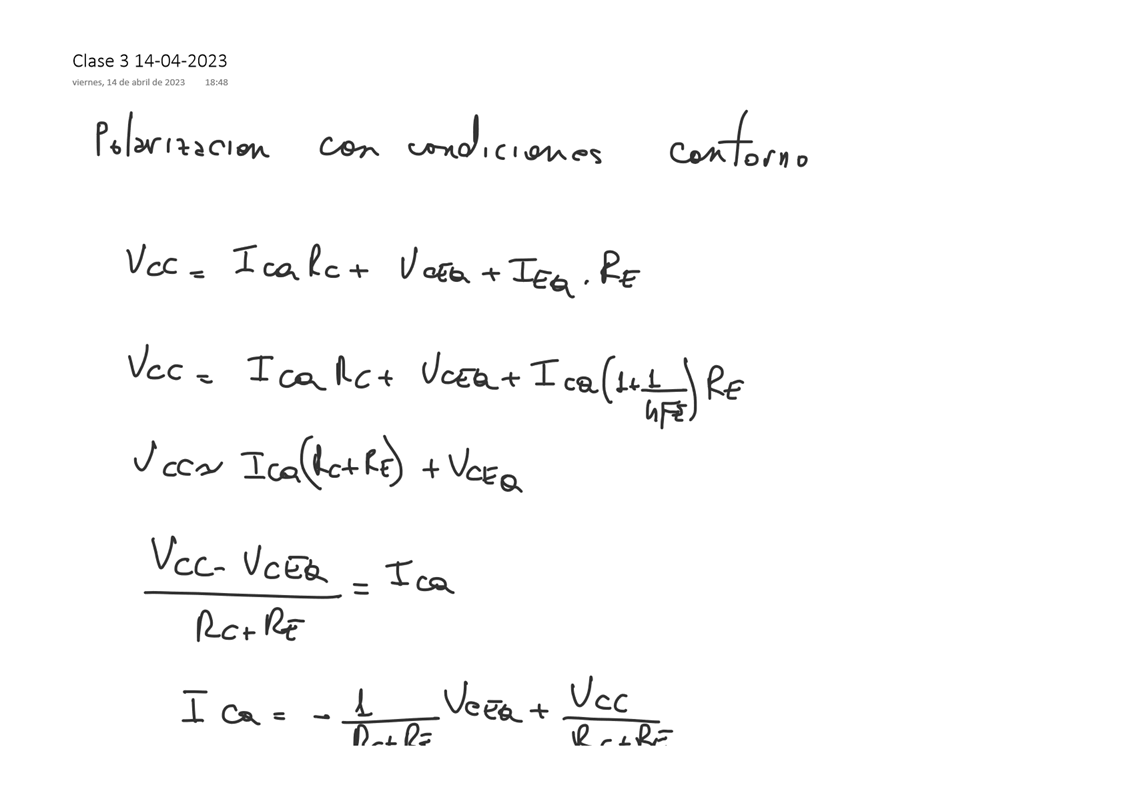 Clase 3 14-04-2023
viernes, 14 de abril de 2023 18:48
Polarizacion con condiciones contorno
VCC = ICQ RC + VCEQ + IEQ . RE
VCC = ICQ RC + VCEQ + ICQ (1+1/hFE) RE
VCC ~ ICQ (RC+RE) + VCEQ
VCC - VCEQ / RC+RE = ICQ
ICQ = - 1/RC+RE VCEQ + VCC/RC+RE